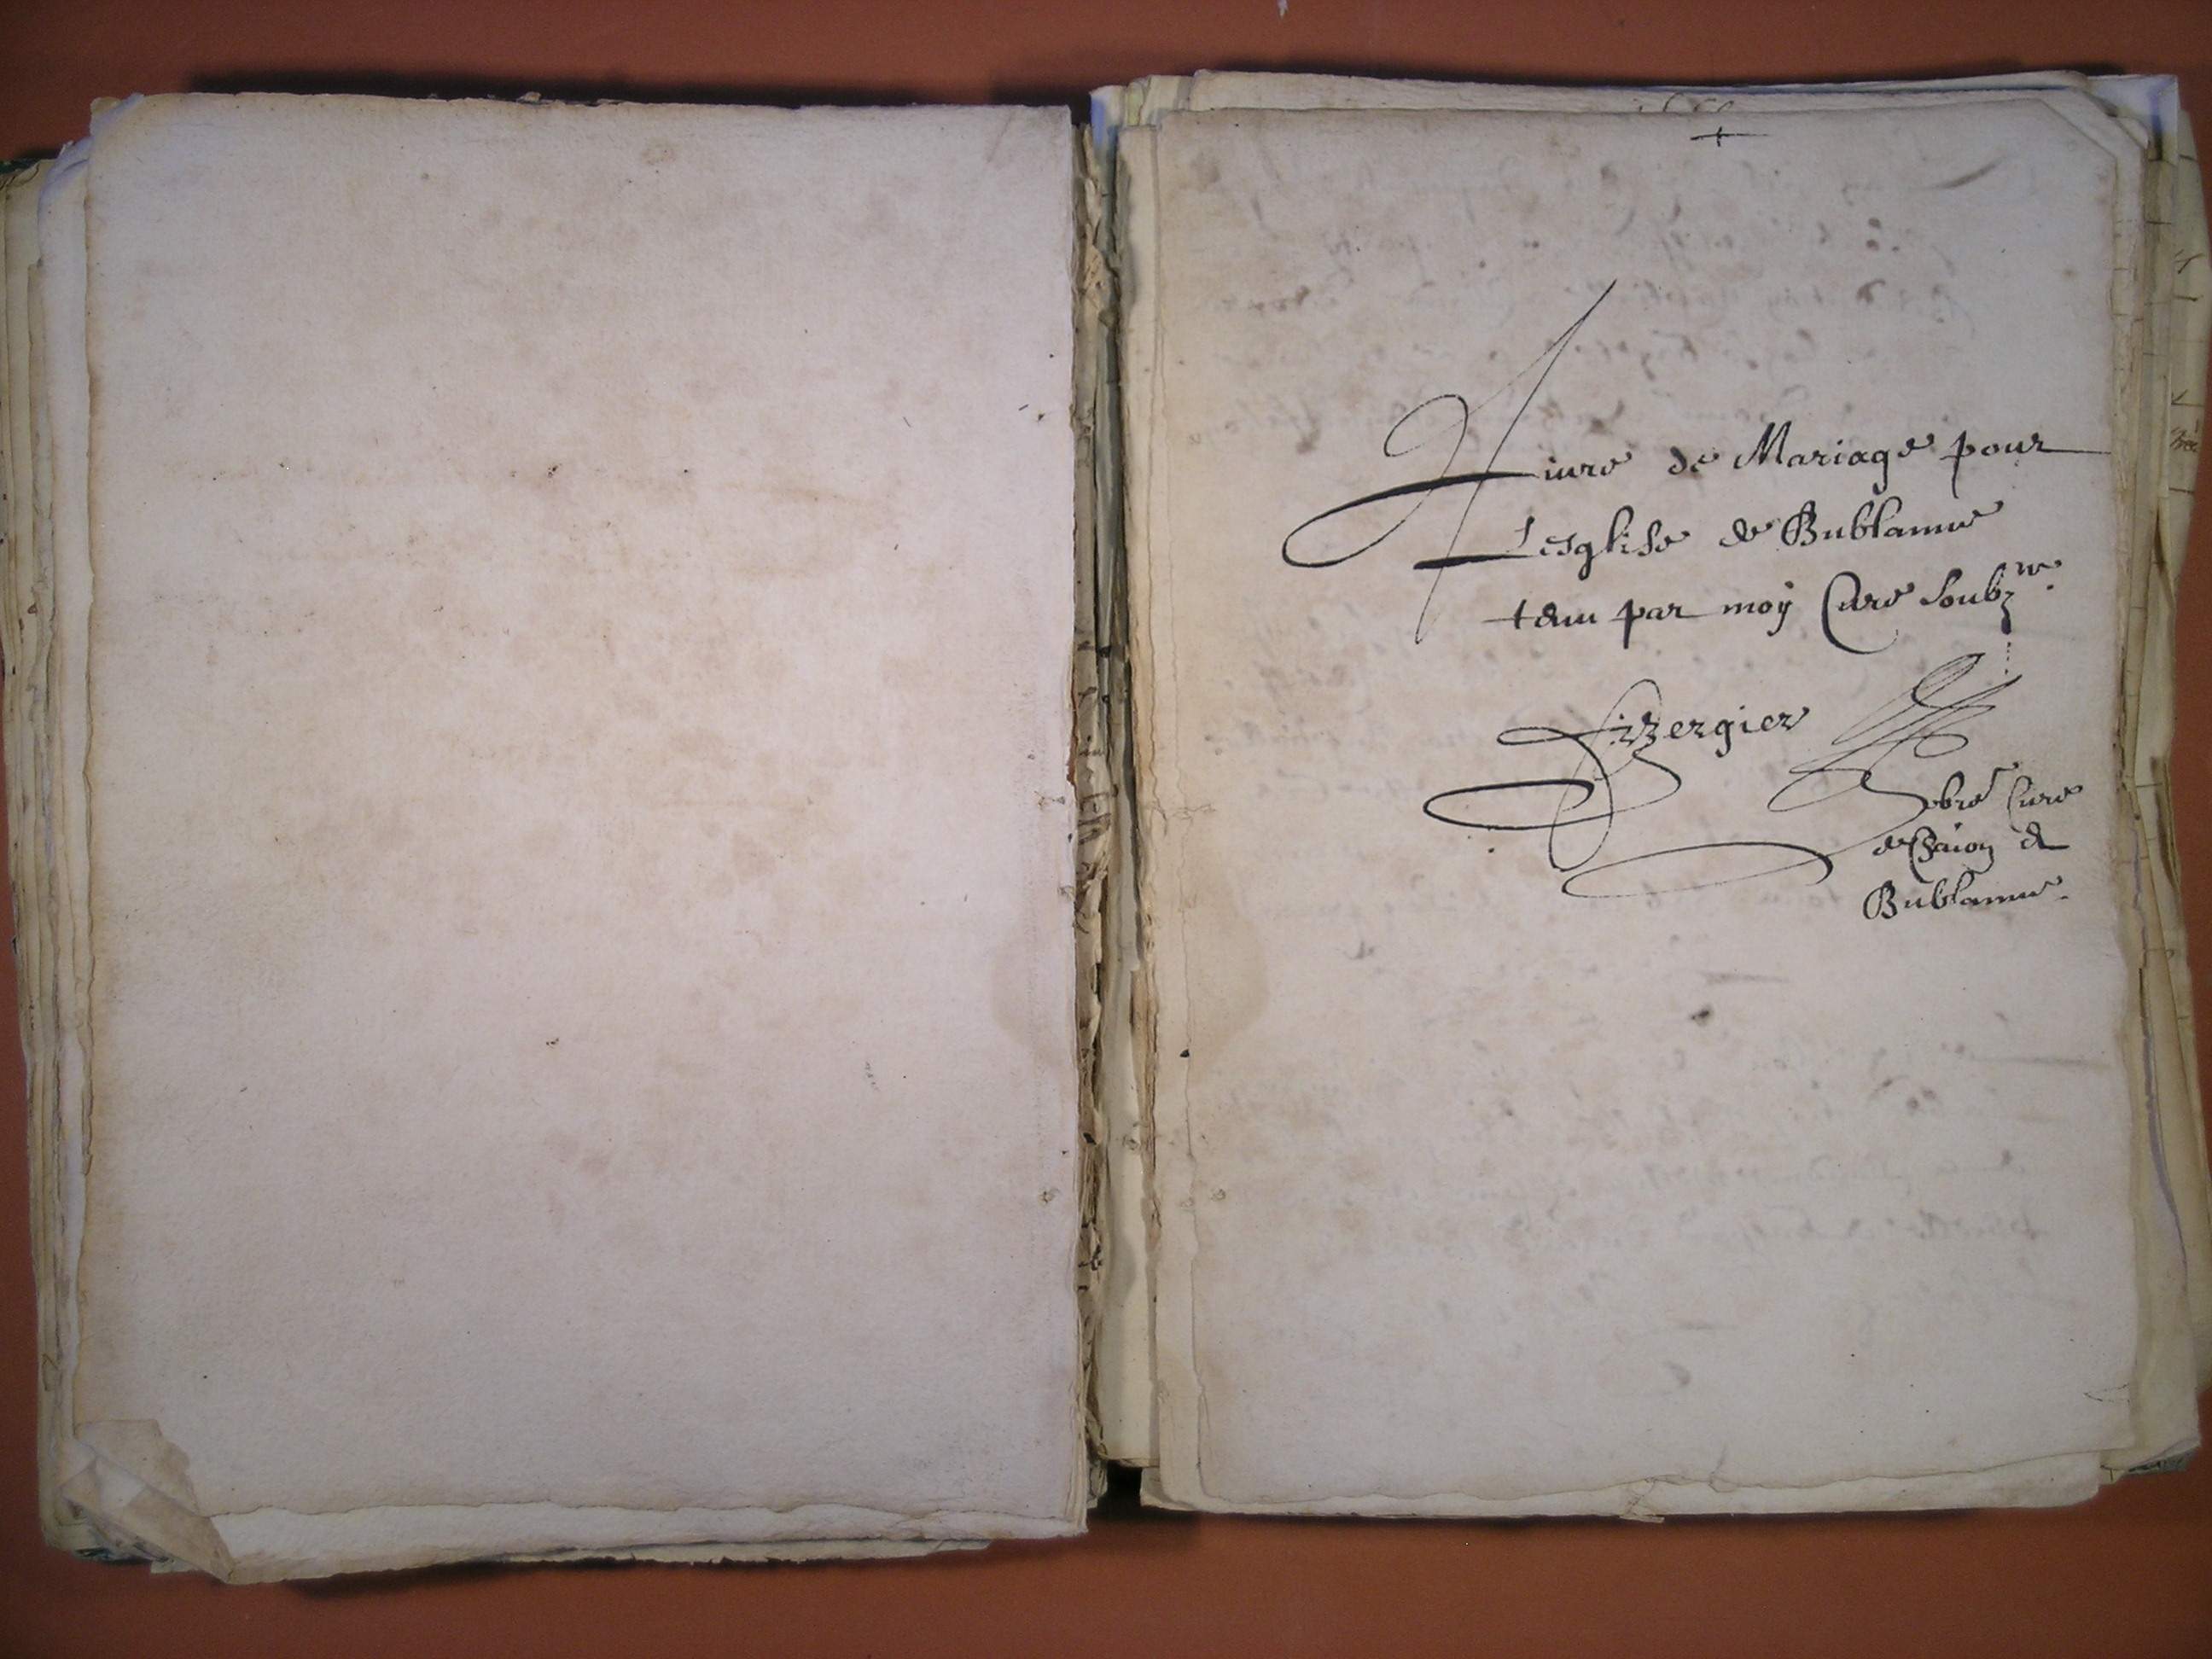 +
Liure de Mariage pour
Lesglise de Bublanne
tenu par moy Cure soubz.ne
Bergier
Cure
de Chaion et
Bublanne.